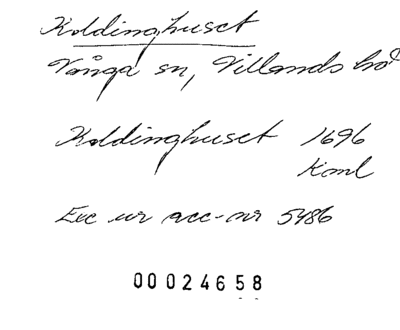 Koldinghuset
Vånga sn, Villands hd
Koldinghuset 1696
Koml
Exc ur acc-nr 5486
00024658